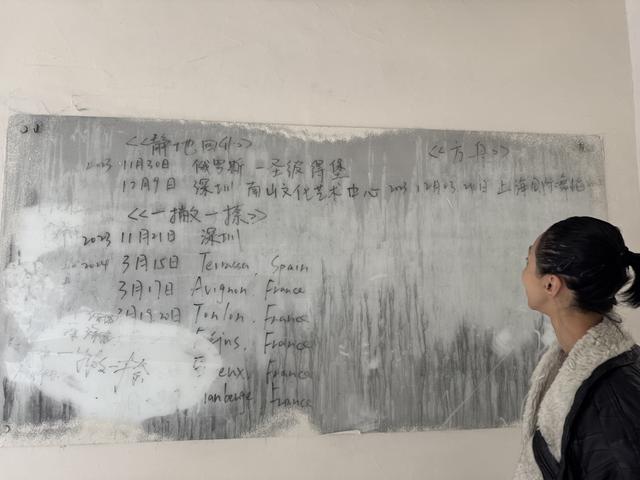 <<静地 <<方舟>>
2023 11月30日 俄罗斯-圣彼得堡
12月9日 深圳 南山文化艺术中心 2023 12月23 24日 上海国际舞蹈
<<一撇一捺>>
2023 11月21日 深圳
2024 3月15日 Terrassa, Spain
3月17日 Avignon. France
20日 Toulon. France
France
France
France
一撇一捺